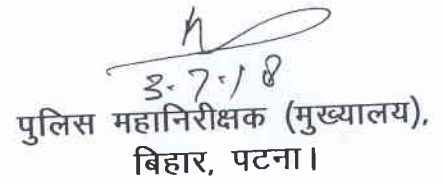 3.7.18
पुलिस महानिरीक्षक (मुख्यालय),
बिहार, पटना।